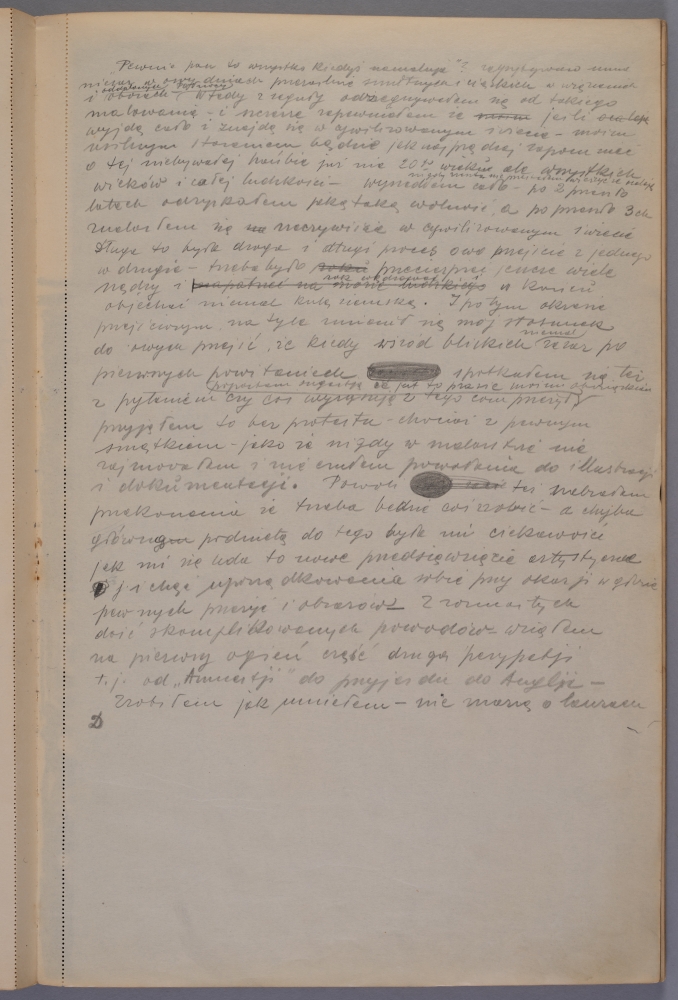 "Pewnie pan to wszystko kiedyś namaluje"? zapytywano mnie
nieraz w owych dniach przeraźnie smutnych i ciężkich w więzieniach
i obozach. Wtedy z reguły odżegnywałem się od takiego
malowania - i szczerze zapewniałem że jeśli
wyjdę cało i znajdę się w cywilizowanym świecie - moim
usilnym staraniem będzie jak najprędzej zapomnieć
o tej niebywałej hańbie już nie 20go wieku ale wszystkich
wieków i całej ludzkości - wyszedłem cało - po 2 przeszło
latach odzyskałem jaką taką wolność, a po przeszło 3ch
znalazłem się rzeczywiście w cywilizowanym świecie
Długa to była droga i długi proces owo przejście z jednego
w drugie - trzeba było przecierpieć jeszcze wiele
nędzy i w końcu
objechać niemal kulę ziemską. I po tym okresie
przejściowym, na tyle zmienił się mój stosunek
do owych przejść, że kiedy wśród bliskich zaraz po
pierwszych powitaniach spotkałem się też
z pytaniem czy coś wyrysuję z tego com przeżył
przyjąłem to bez protestu - chociaż z pewnym
smętkiem - jako że nigdy w malarstwie nie
zajmowałem i nie czułem powołania do illustracji
i dokumentacji. Powoli też nabrałem
przekonania że trzeba będzie coś zrobić - a chyba
główną podnietą do tego była mi ciekawość
jak mi się uda to nowe przedsięwzięcie artystyczne
i chęć uporządkowania sobie przy okazji w głowie
pewnych przeżyć i obrazów. Z rozmaitych
dość skomplikowanych powodów - wziąłem
na pierwszy ogień część drugą perypetji
t.j. od „Amnestji" do przyjazdu do Anglji -
Zrobiłem jak umiałem - nie marzę o laurach